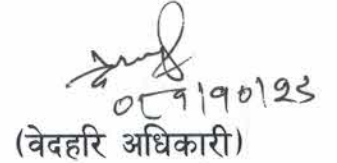 ०८१|१०|२३
(वेदहरि अधिकारी)